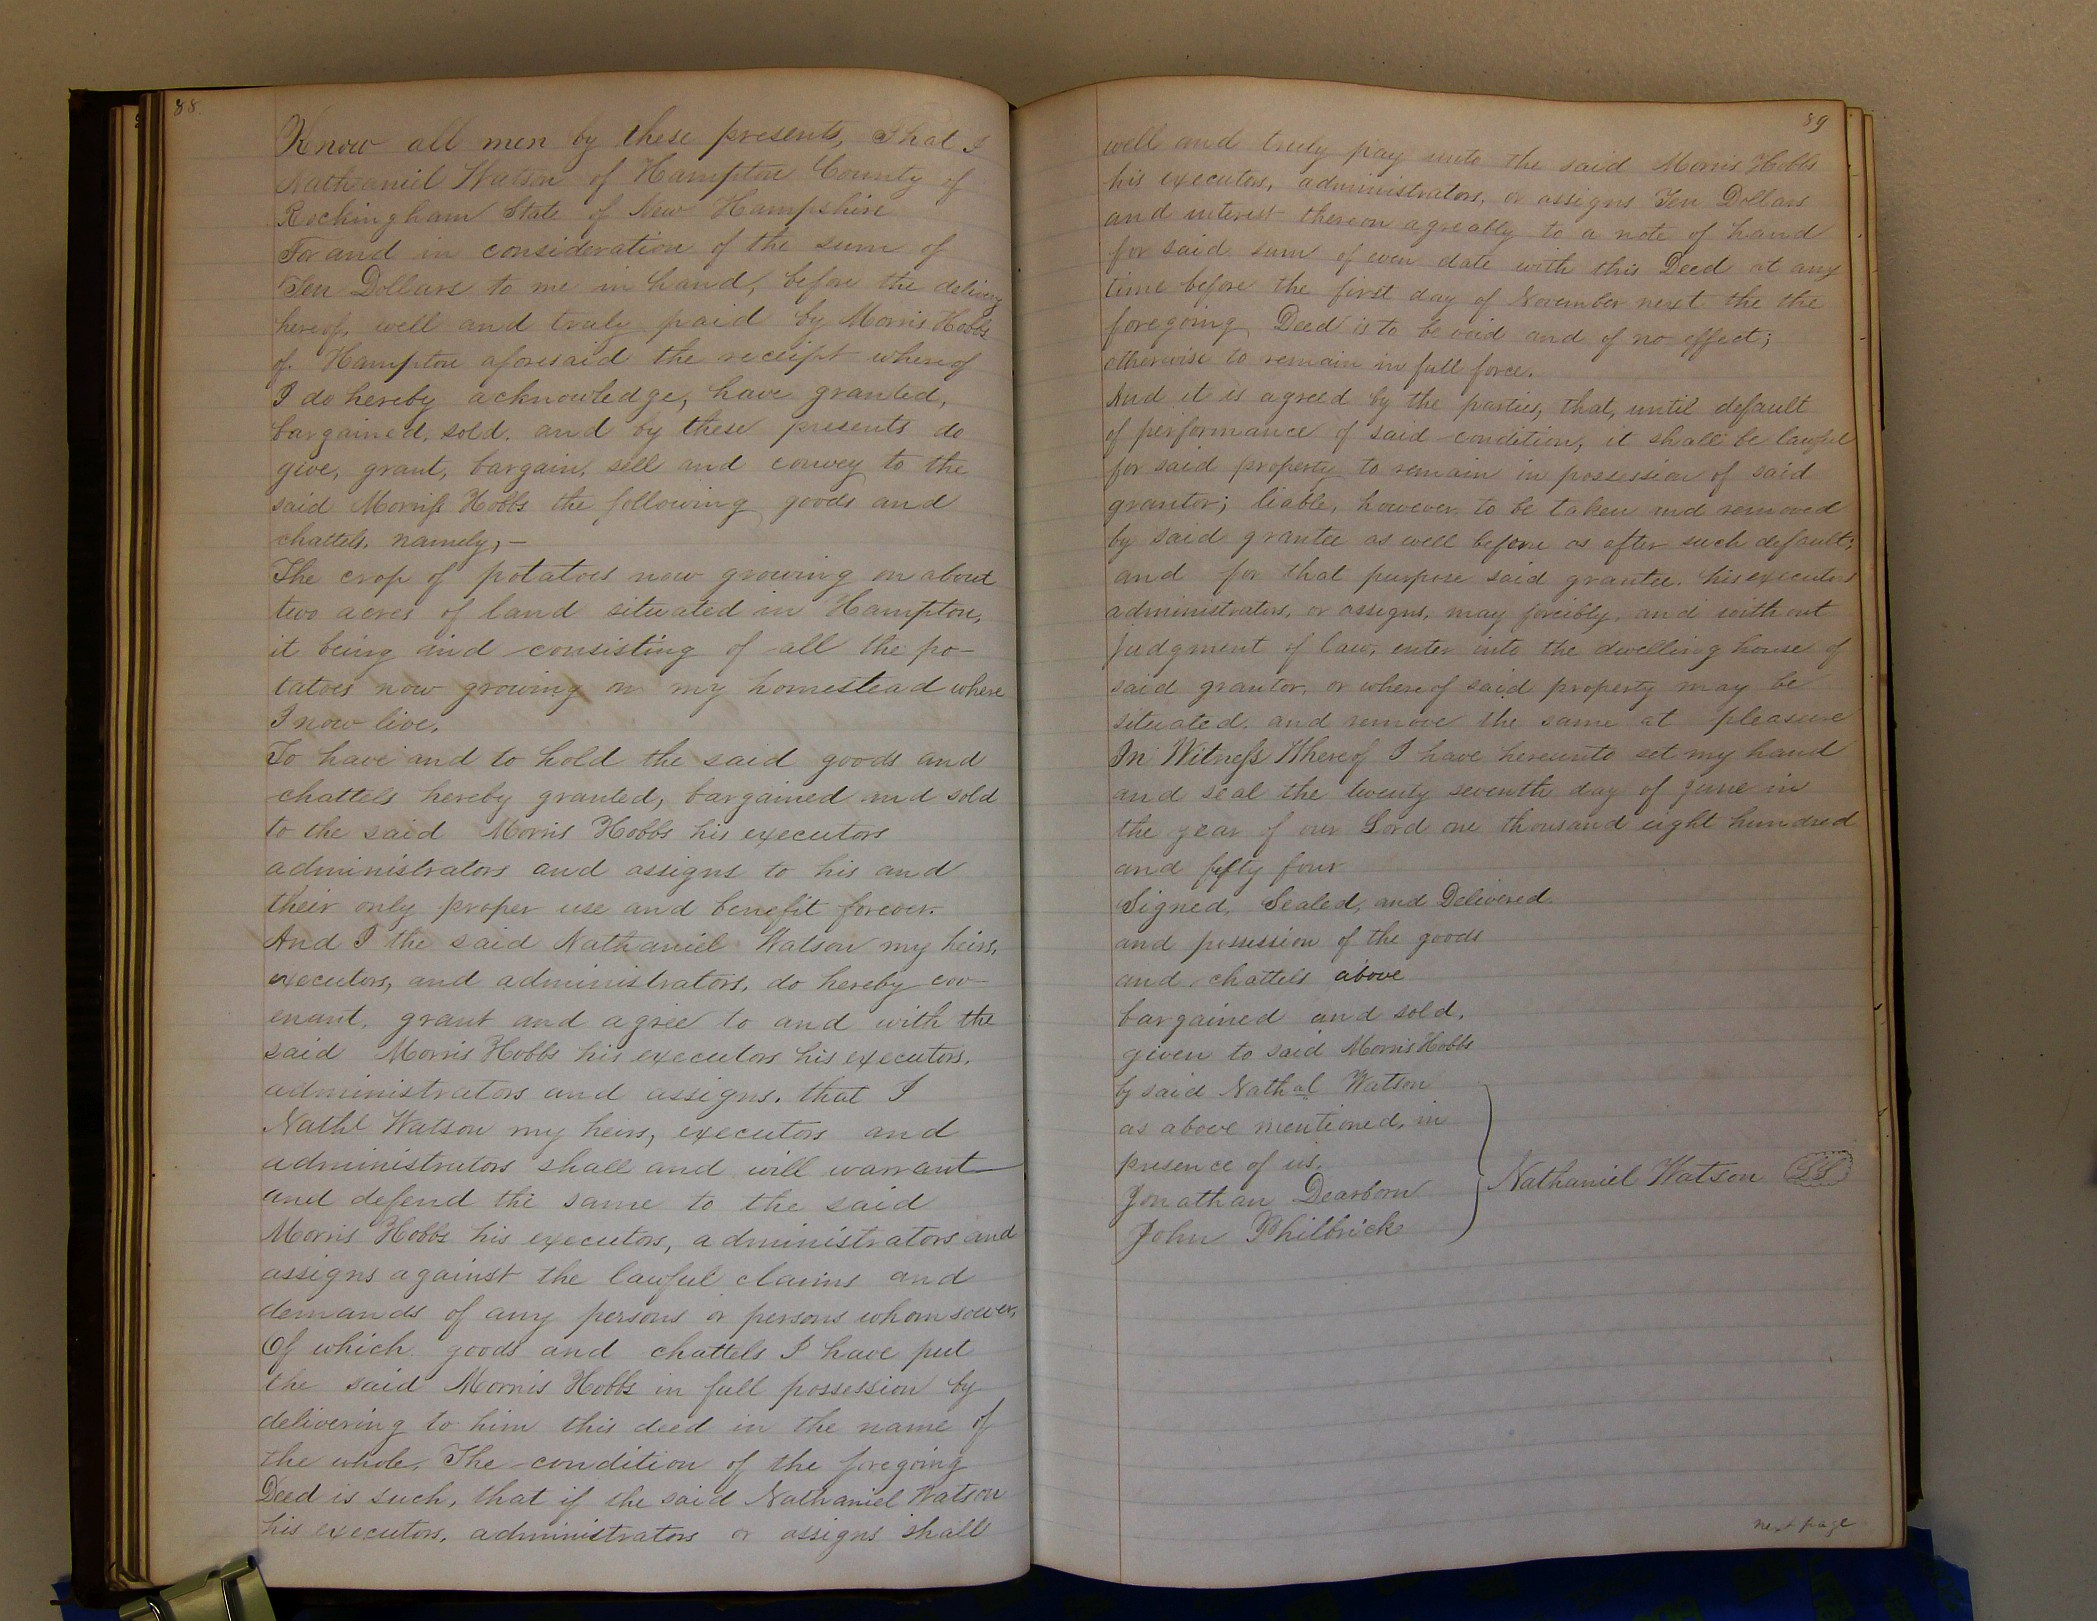 88.
Know all men by these presents, That I
Nathaniel Watson of Hampton County of
Rockingham State of New Hampshire
For and in consideration of the sum of
Ten Dollars to me in hand, before the delivery
hereof, well and truly paid by Morris Hobbs
of Hampton aforesaid the receipt whereof
I do hereby acknowledge, have granted,
bargained, sold, and by these presents do
give, grant, bargain, sell and convey to the
said Morriss Hobbs the following goods and
chattels, namely, —
The crop of potatoes now growing on about
two acres of land situated in Hampton,
it being and consisting of all the po-
tatoes now growing on my homestead where
I now live.
To have and to hold the said goods and
chattels hereby granted, bargained and sold
to the said Morris Hobbs his executors
administrators and assigns to his and
their only proper use and benefit forever.
And I the said Nathaniel Watson my heirs,
executors, and administrators, do hereby cov-
enant, grant and agree to and with the
said Morris Hobbs his executors his executors,
administrators and assigns, that I
Nathl Watson my heirs, executors and
administrators shall and will warrant
and defend the same to the said
Morris Hobbs his executors, administrators and
assigns against the lawful claims and
demands of any persons or persons whomsoever.
Of which goods and chattels I have put
the said Morris Hobbs in full possession by
delivering to him this deed in the name of
the whole. The condition of the foregoing
Deed is such, that if the said Nathaniel Watson
his executors, administrators or assigns shall
89
well and truly pay unto the said Morris Hobbs
his executors, administrators, or assigns Ten Dollars
and interest thereon agreably to a note of hand
for said sum of even date with this Deed at any
time before the first day of November next the the
foregoing Deed is to be void and of no effect;
otherwise to remain in full force.
And it is agreed by the parties, that, until default
of performance of said condition, it shall be lawful
for said property to remain in possession of said
grantor; liable, however, to be taken and removed
by said grantee as well before as after such default;
and for that purpose said grantee, his executors
administrators, or assigns, may forcibly, and without
Judgment of law, enter into the dwelling house of
said grantor, or whereof said property may be
situated, and remove the same at pleasure
In Witness Whereof I have hereunto set my hand
and seal the twenty seventh day of June in
the year of our Lord one thousand eight hundred
and fifty four
Signed, Sealed, and Delivered
and possession of the goods
and chattels above
bargained and sold,
given to said Morris Hobbs
by said Nathal Watson
as above mentioned, in
presence of us.
Jonathan Dearborn
Nathaniel Watson LS
John Philbrick
next page